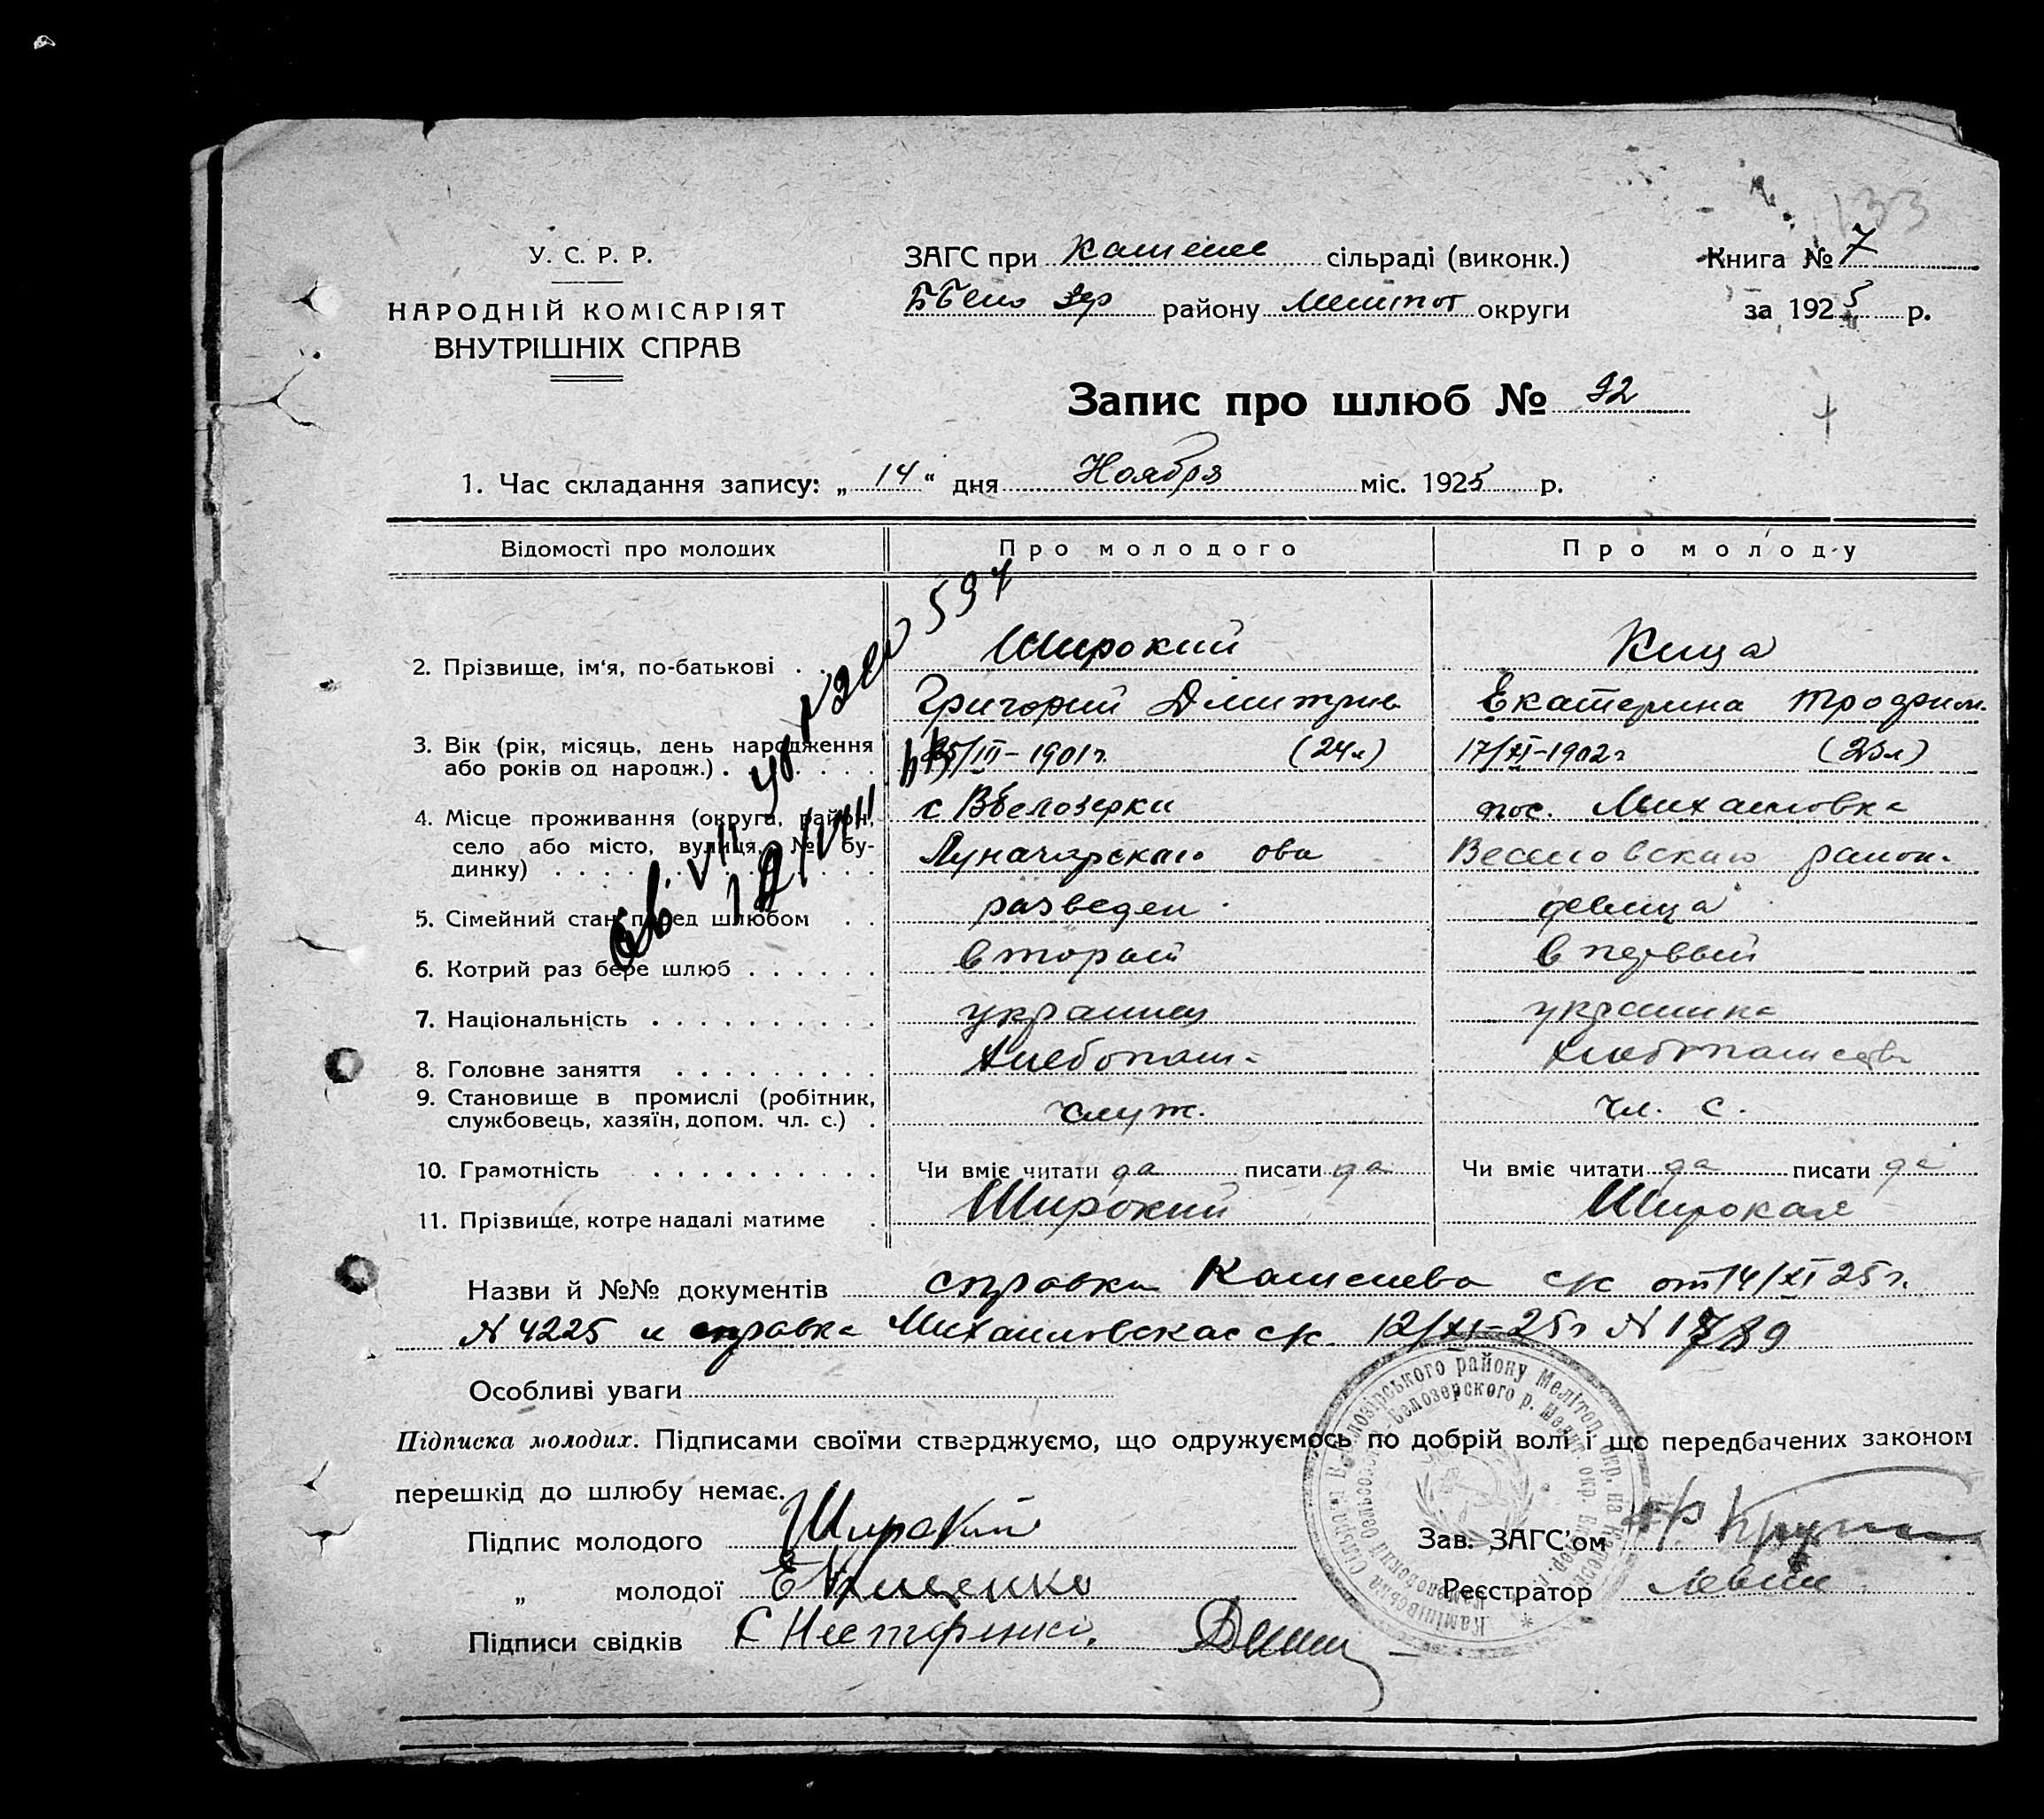 133
У. С. Р. Р.
НАРОДНІЙ КОМІСАРІЯТ
ВНУТРІШНІХ СПРАВ
ЗАГС при сільраді (виконк.)
району Мелитоп округи
Книга № 7
за 1925 р.
Запис про шлюб № 92
1. Час складання запису: „ 14 “ дня Ноября міс. 1925 р.
Відомості про молодих Про молодого Про молоду
2. Прізвище, ім'я, по-батькові . . . Широкий Кица
Григорий Дмитрив Екатерина Трофим.
3. Вік (рік, місяць, день народження
або років од народж.) . . . . . 25/III-1901г. (24л) 17/XI-1902г (23л)
4. Місце проживання (округа, район,
село або місто, вулиця, № бу-
динку) . . . . . . . . . .
с ВБелозерки пос. Михайловка
Луначарскаго ова Веселовскаго район.
5. Сімейний стан перед шлюбом . . разведен девица
6. Котрий раз бере шлюб . . . . . . второй в первый
7. Національність . . . . . . . . . . украинец украинка
8. Головне заняття . . . . . . . . . Хлебопаш-
9. Становище в промислі (робітник,
службовець, хазяїн, допом. чл. с.) . служ. чл. с.
10. Грамотність . . . . . . . . . . Чи вміє читати да писати да Чи вміє читати да писати да
11. Прізвище, котре надалі матиме . Широкий Широкая
Назви й №№ документів справка с/с от 14/XI 25г.
№ 4225 и справка Михайловская с/с 12/XI-25г №
Особливі уваги
Підписка молодих. Підписами своїми стверджуємо, що одружуємось по добрій волі і що передбачених законом
перешкід до шлюбу немає.
Підпис молодого Широкий
Зав. ЗАГС'ом
„ молодої
Реєстратор
Підписи свідків С Нестеренко.